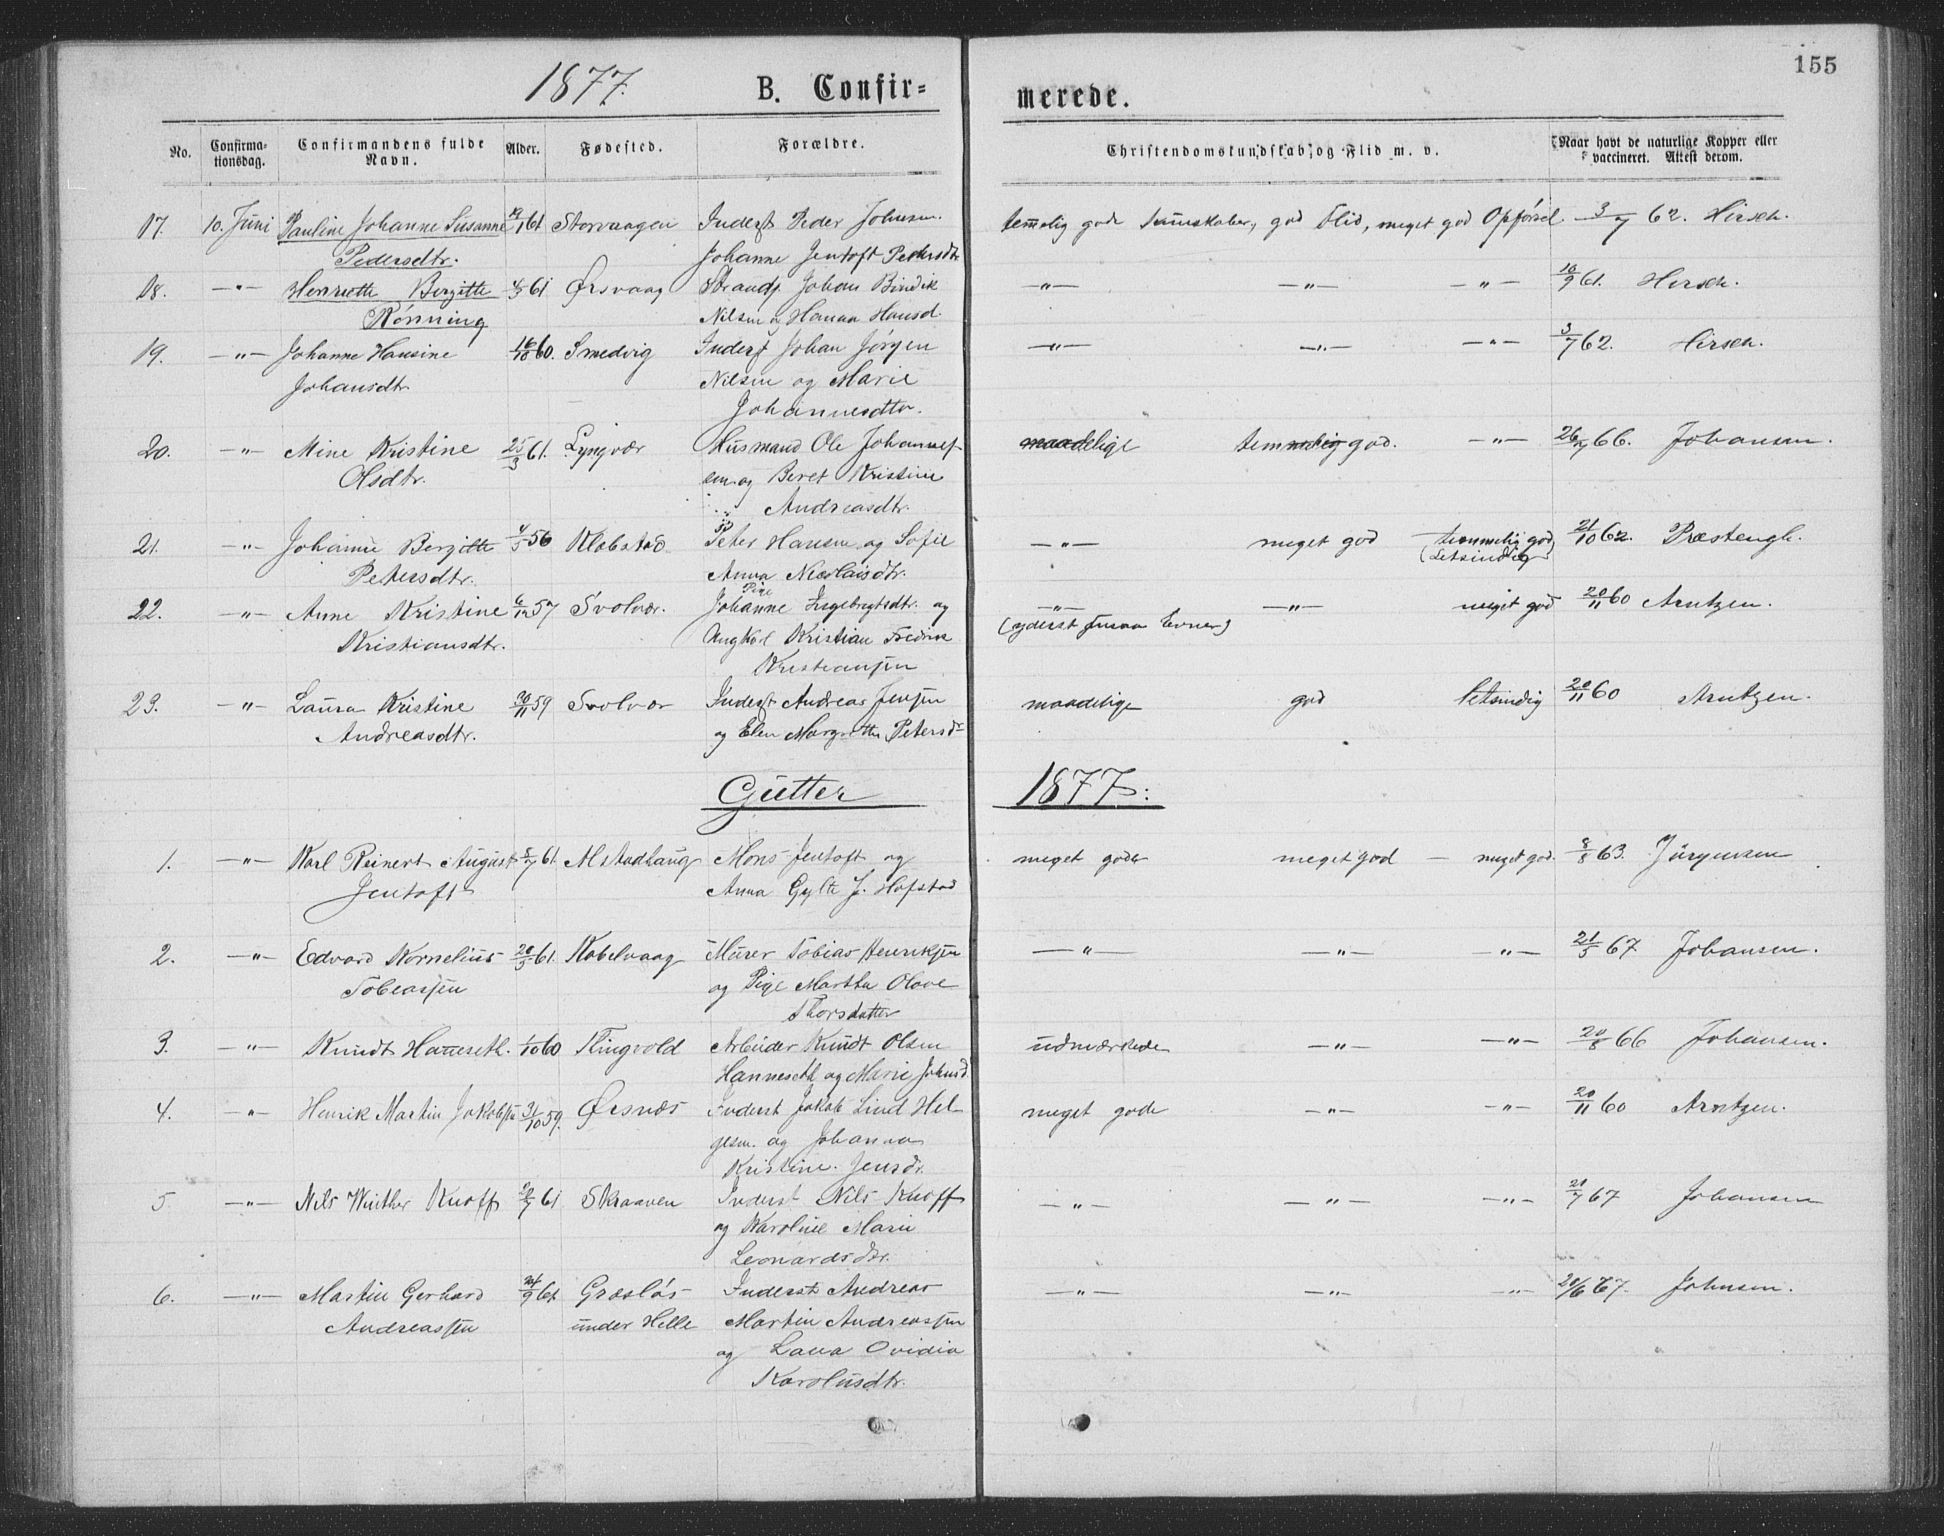 155
1877. B. Confir= merede.
No. Confirma-tionsdag. Confirmandens fulde Navn. Alder. Fødested. Forældre. Christendomskundskab og Flid m. v. Naar havt de naturlige Kopper eller vaccineret. Attest derom.
17. 10. Juni Pauline Johanne Susanne 61 Storvaagen Inderst Peder Johnsen temmelig gode Kundskaber, god Flid, meget god Opførsel 3/7 62. Hirsch.
Pedersdtr. Johanne Jentoft Pedersdtr
18. —"— Henriette Bergitte 4/3 61 Ørsvaag Strands. Johan Bendik —"— —"— —"— 10/9 61. Hirsch.
Rönning Nilsen og Hanna Hansd.
19. —"— Johanne Hansine 16/10 60. Smedvig Inderst Johan Jørgen —"— —"— —"— 3/7 62. Hirsch.
Johansdtr. Nilsen og Marie
Johannesdtr.
20. —"— Mine Kristine 25/3 61. Lyngvær Husmand Ole Johannes- maadelige temmelig god. —"— 26/7 66. Johansen.
Olsdtr. sen og Beret Kristine
Andreasdtr.
21. —"— Johanne Bergitte 4/5 56 Klobstad Peter Hansen og Sofie —"— meget god temmelig god 21/10 62. Præstengh.
Petersdtr. Anna Nicolaisdtr. (Letsindig)
22. —"— Anne Kristine 6/12 57 Svolvær. Pige Johanne Ingebrigtsdtr. og —"— —"— meget god 20/11 60 Arntzen.
Kristiansdtr. Ungkarl Kristian Fredrik (yderst smaa Evner)
Kristiansen
23. —"— Laura Kristine 20/11 59 Svolvær Inderst Andreas Jensen maadelige god letsindig 20/11 60 Arntzen.
Andreasdtr. og Elen Margrethe Petersdr
Gutter 1877:
1. —"— Karl Reinert August 8/7 61. Alstadhaug Mons Jentoft og meget gode meget god — meget god. 8/8 63. Jürgensen
Jentoft Anna Gylte J. Hofstad
2. —"— Edvard Kornelius 20/3 61. Kabelvaag Murer Tobias Henriksen —"— —"— —"— 21/5 67 Johansen.
Tobiassen og Pige Martha Olave
Thorsdatter
3. —"— Knudt Hanneseth. 1/10 60 Tingvold Arbeider Knudt Olsen udmærkede —"— —"— 20/8 66 Johansen.
Hanneseth og Marie Johnsd.
4. —"— Henrik Martin Jakobsen 31/10 59. Ørsnæs Inderst Jakob Lind Hel- meget gode —"— —"— 20/11 60 Arntzen.
gesen. og Johanna
Kristine. Jensdr.
5 —"— Nils Winther Knoff 61 Skraaven Inderst Nils Knoff —"— —"— —"— 21/7 67 Johansen
og Karoline Marie
Leonardsdtr.
6. —"— Martin Gerhard 24/9 61 Græsløs Inderst Andreas —"— —"— —"— 20/6 67. Johnsen.
Andreassen under Helle Martin Andreassen
og Laua Ovidia
Karolusdtr.